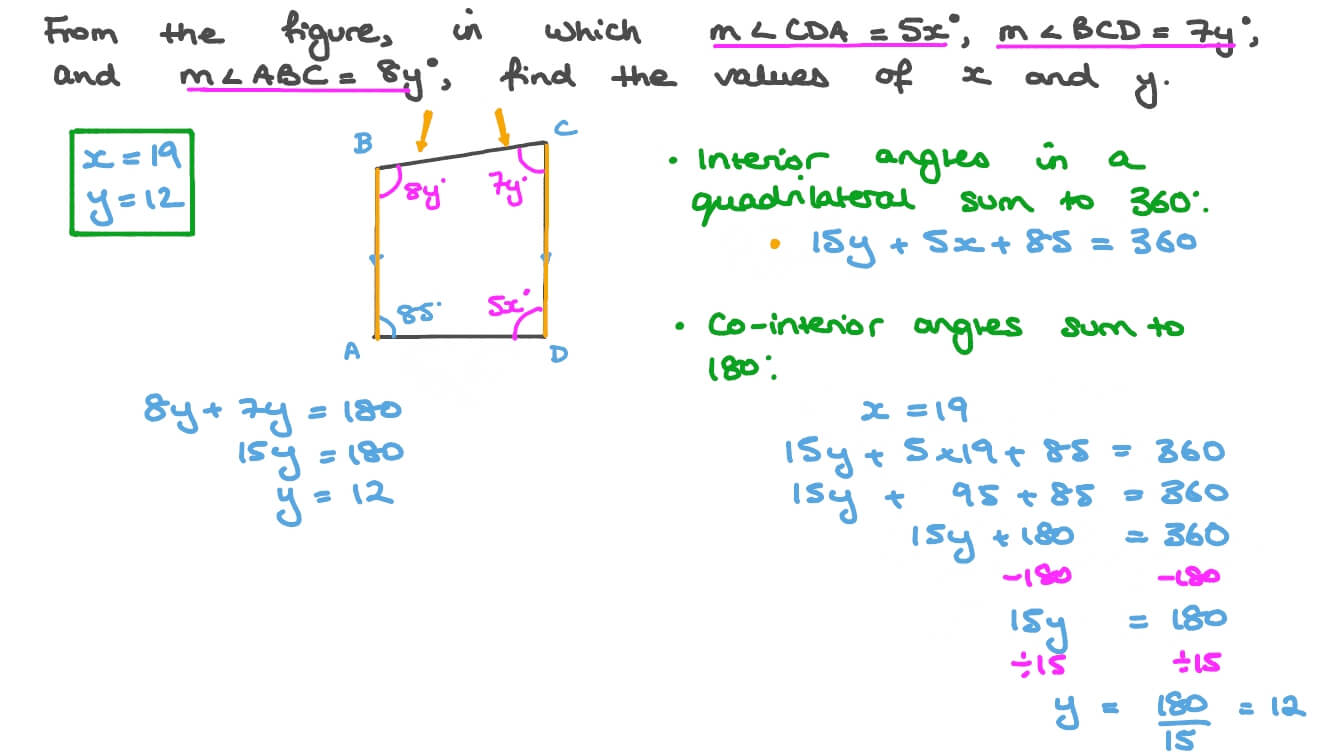 From the figure, in which m∠CDA = 5x°, m∠BCD = 7y°,
and m∠ABC = 8y°, find the values of x and y.
x = 19
y = 12
B
C
8y°
7y°
85°
5x°
A
D
8y + 7y = 180
15y = 180
y = 12
• Interior angles in a
quadrilateral sum to 360°.
• 15y + 5x + 85 = 360
• Co-interior angles sum to
180°.
x = 19
15y + 5×19 + 85 = 360
15y + 95 + 85 = 360
15y + 180 = 360
-180 -180
15y = 180
÷15 ÷15
y = 180/15 = 12